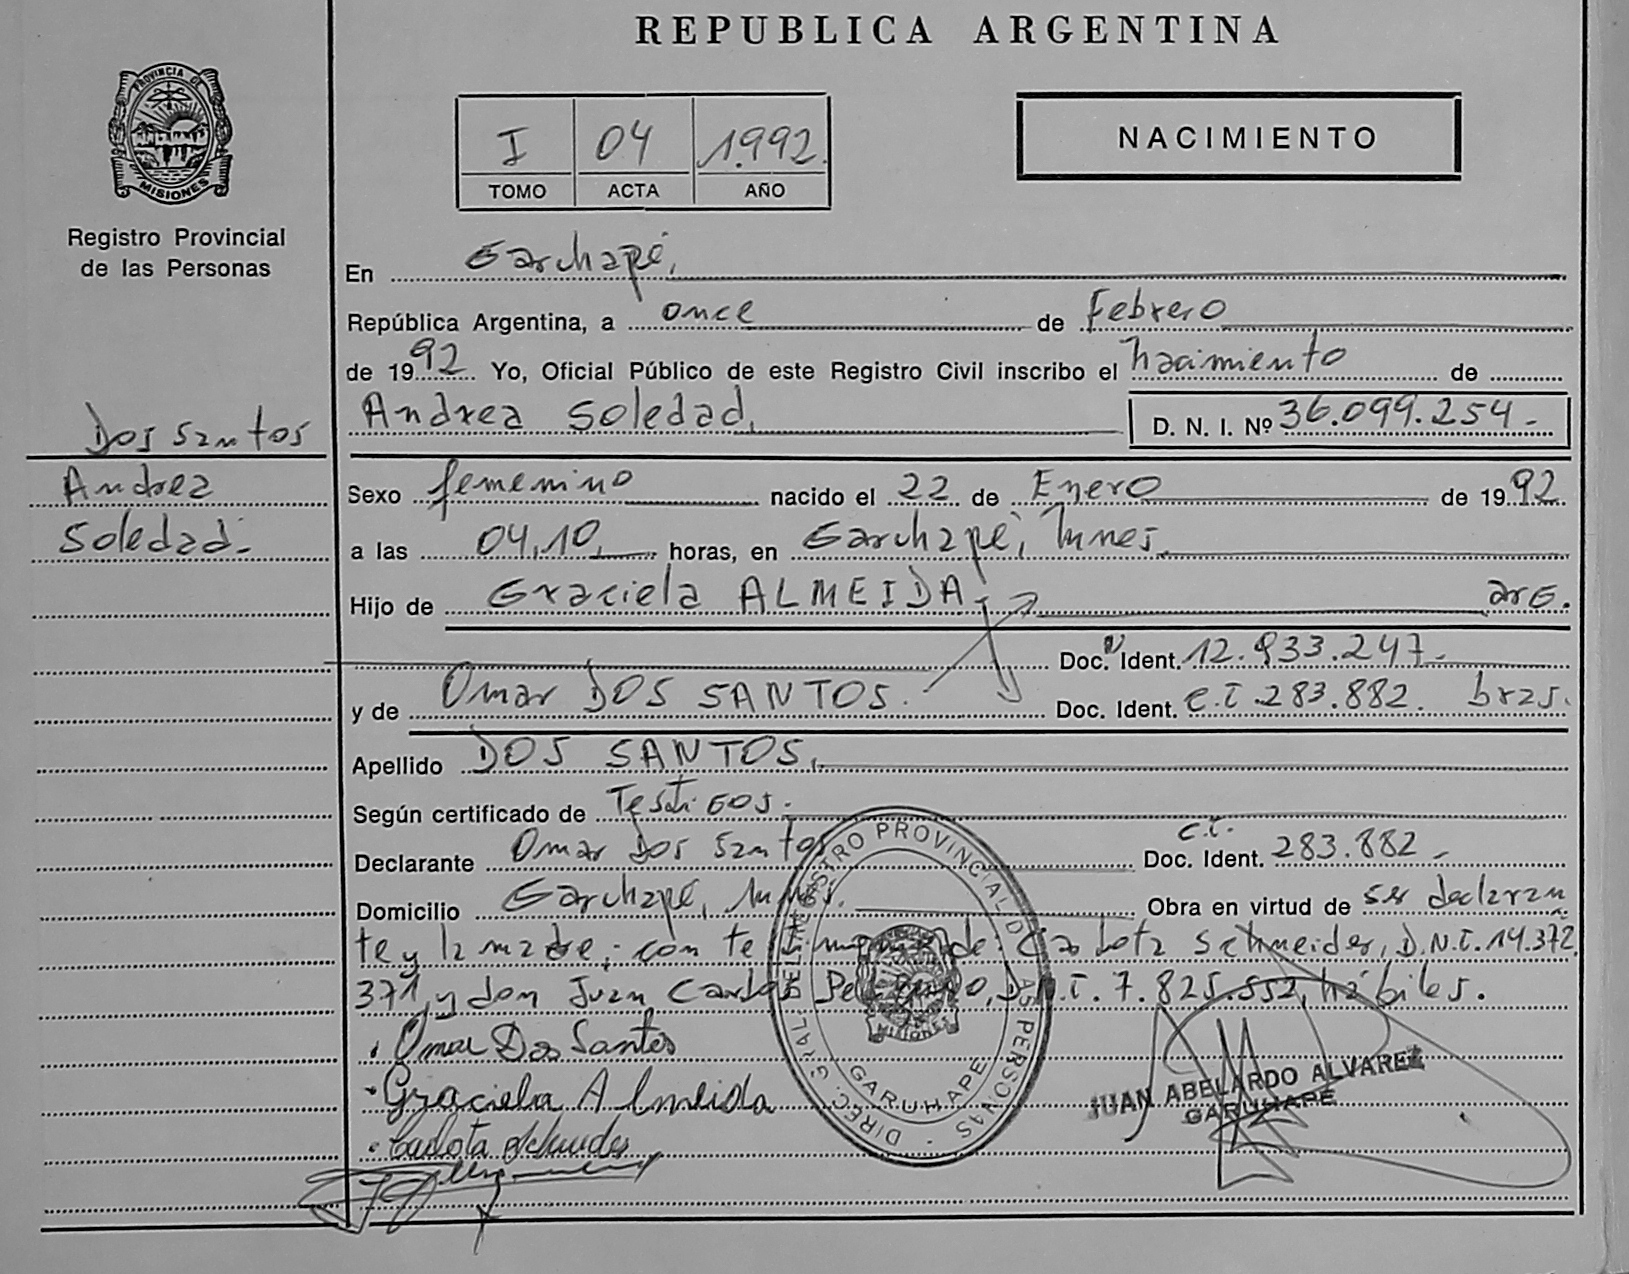 REPUBLICA ARGENTINA
PROVINCIA DE
MISIONES
Registro Provincial
de las Personas
I 04 1.992.
TOMO ACTA AÑO
NACIMIENTO
En Garuhapé,
República Argentina, a once de Febrero
de 1992 Yo, Oficial Público de este Registro Civil inscribo el nacimiento de
Andrea Soledad, D. N. I. Nº 36.099.254.-
Dos Santos
Andrea
Soledad.-
Sexo femenino nacido el 22 de Enero de 1992
a las 04,10, horas, en Garuhapé, Mnes.
Hijo de Graciela ALMEIDA, arg.
Doc. Ident. 12.933.247.-
y de Omar DOS SANTOS. Doc. Ident. C.I. 283.882. bras.
Apellido DOS SANTOS,
Según certificado de Testigos.-
Declarante Omar Dos Santos Doc. Ident. C.I. 283.882.-
Domicilio Garuhapé, Mnes. Obra en virtud de ser declaran
te y la madre; con de: Carlota Schneider, D.N.I. 14.372.
371, y don Juan Carlos D.N.I. 7.825.552, hábiles.
Omar Dos Santos
Graciela Almeida
Carlota Schneider
DIREC. GRAL. DEL REGISTRO PROVINCIAL DE LAS PERSONAS
GARUHAPE
MISIONES
JUAN ABELARDO ALVAREZ
GARUHAPE